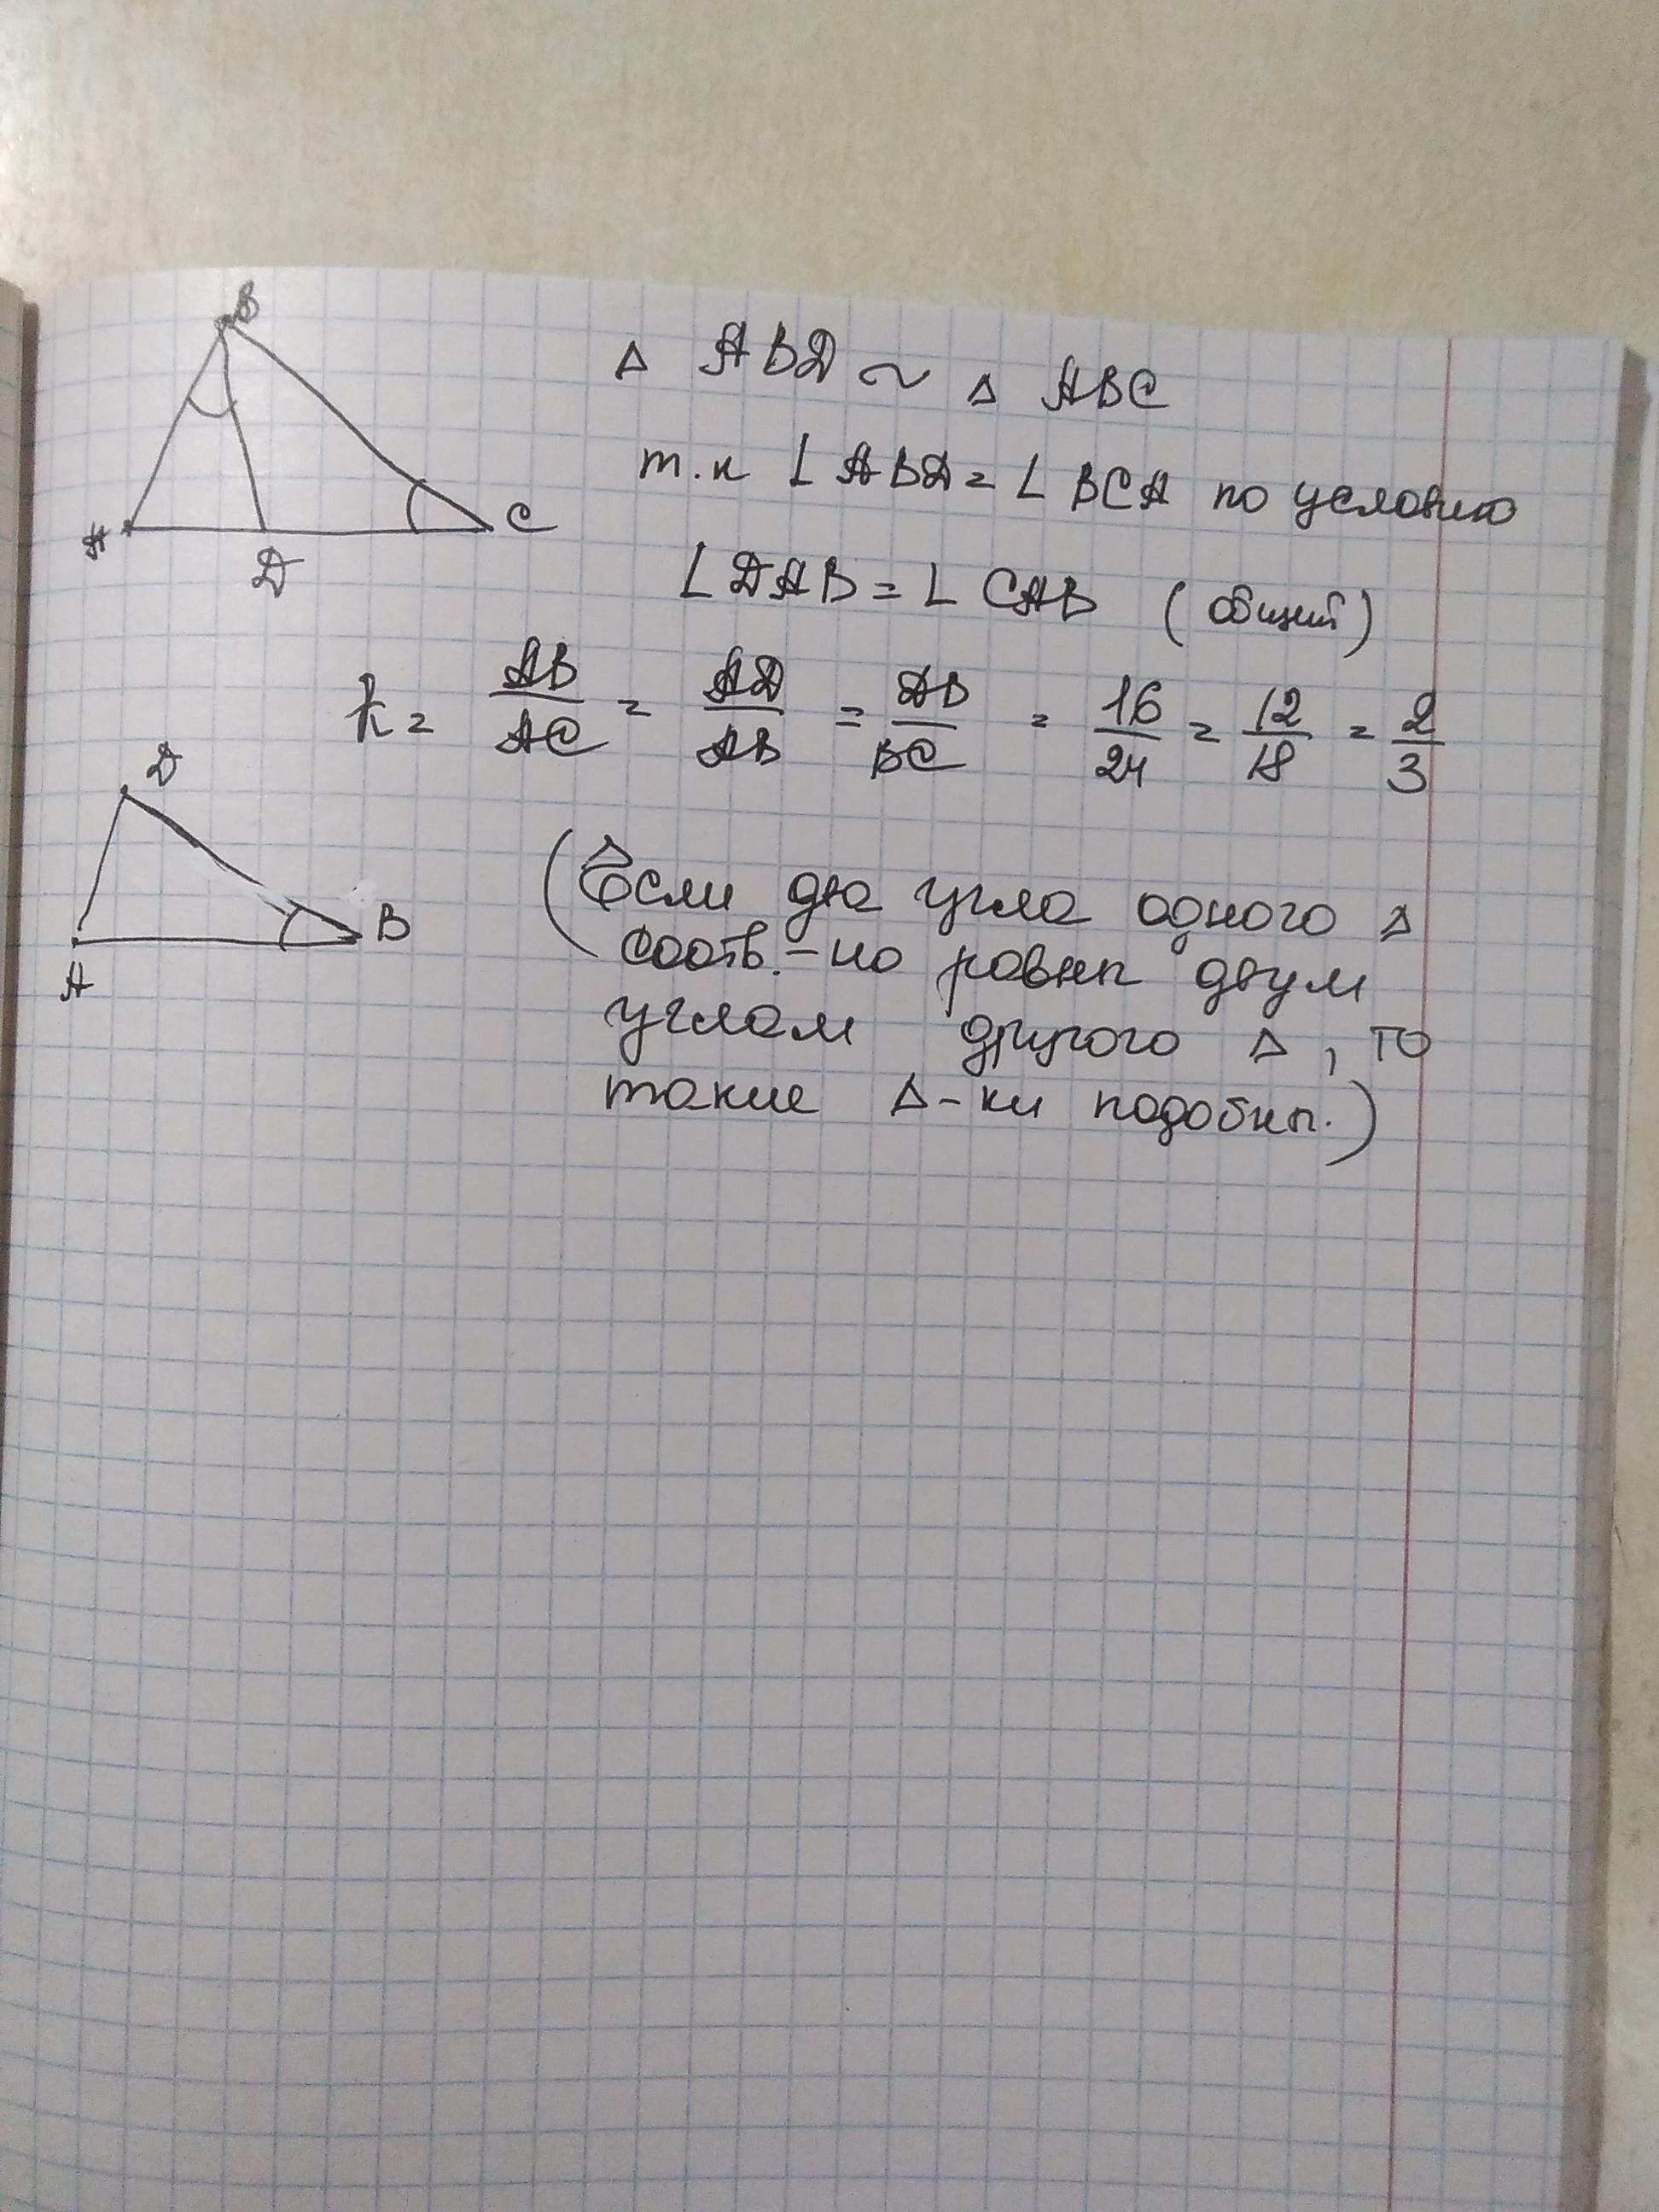 B
A
D
C
△ ABD ~ △ ABC
т.к ∠ ABD = ∠ BCA по условию
∠ DAB = ∠ CAB (общий)
k = AB/AC = AD/AB = DB/BC = 16/24 = 12/18 = 2/3
D
A
B
(Если два угла одного △
соотв.-но равны двум
углам другого △, то
такие △-ки подобны.)